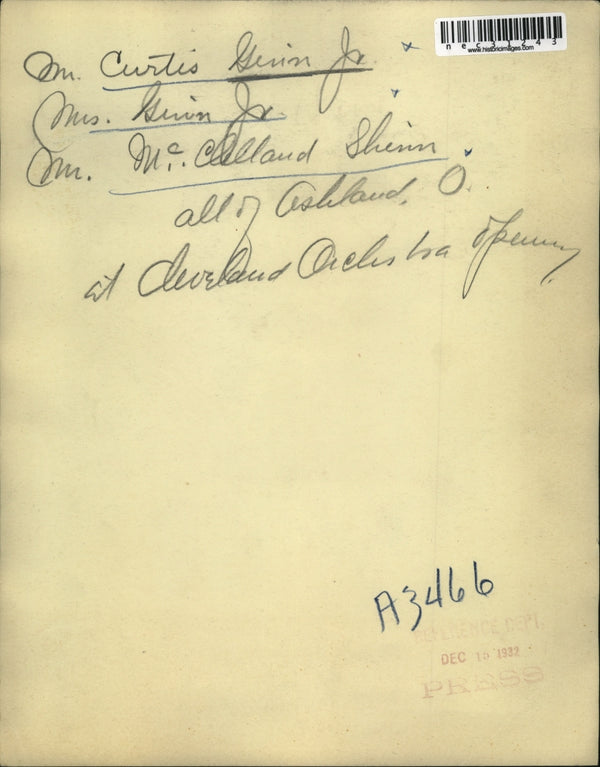 nec31243
www.historicimages.com
Mr. Curtis Ginn Jr.
Mrs. Ginn Jr.
Mr. Mc.Clelland Shinn
all of Ashland, O.
at Cleveland Orchestra opening
A3466
REFERENCE DEPT.
DEC 15 1932
PRESS